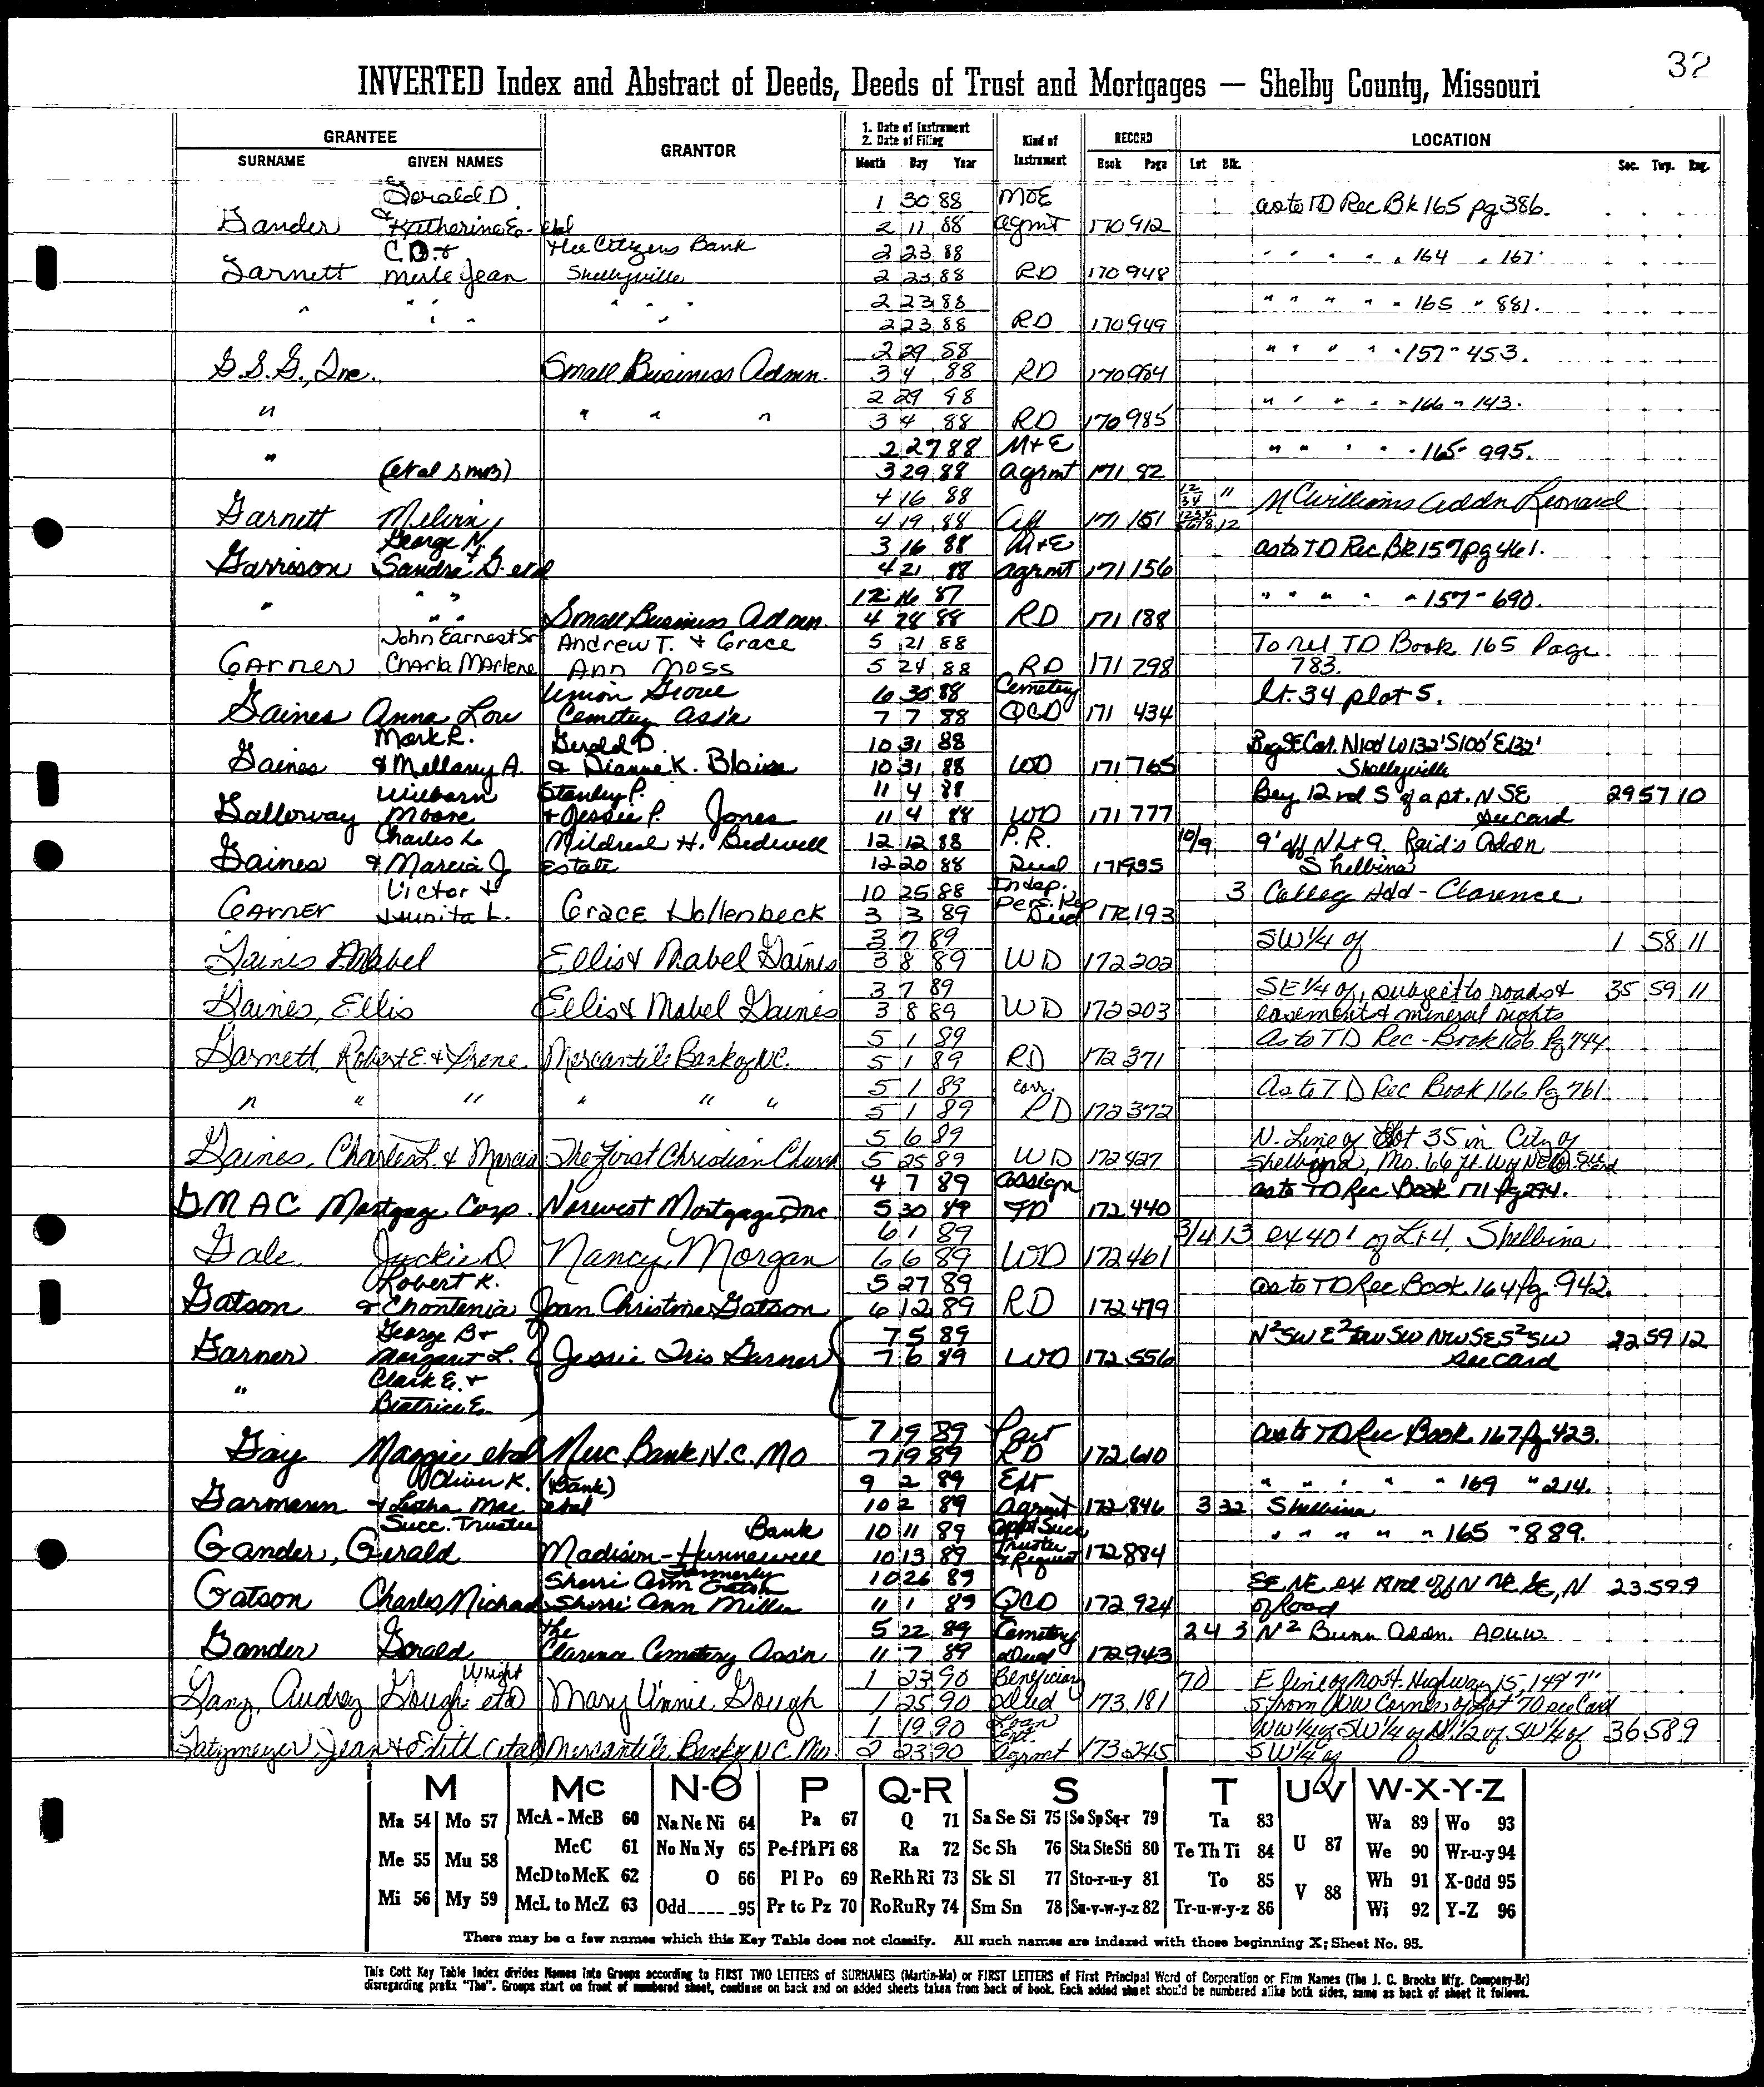 32
INVERTED Index and Abstract of Deeds, Deeds of Trust and Mortgages — Shelby County, Missouri
GRANTEE GRANTOR 1. Date of Instrument 2. Date of Filing Kind of Instrument RECORD LOCATION
SURNAME GIVEN NAMES Month Day Year Book Page Lot Blk. Sec. Twp. Rng.
Gerald D. 1 30 88 M&E as to TD Rec Bk 165 pg 386.
Gander & Katherine E. etal 2 11 88 agmt 170 912
C.D. & The Citizens Bank 2 23 88 " " " " 164 " 167.
Garnett Merle Jean Shelbyville 2 23 88 RD 170 948
" " " " " " 2 23 88 " " " " " 165 " 881.
2 23 88 RD 170 949
2 29 88 " " " " " 157 " 453.
G.S.G., Inc. Small Business Admn. 3 4 88 RD 170 984
2 29 88 " " " " " 166 " 143.
" " " " 3 4 88 RD 170 985
2 27 88 M+E " " " " " 165 " 995.
" (etal SMB) 3 29 88 agrmt 171 82
4 16 88 " McWilliams Addn Leonard
Garnett Melvin 4 19 88 Aff 171 151 12
George N. 3 16 88 M+E as to TD Rec Bk 157 pg 461.
Garrison Sandra G. etal 4 21 88 agrmt 171 156
" " " 12 16 87 " " " " " 157 " 690.
" " Small Business Admn. 4 28 88 RD 171 188
John Earnest Sr Andrew T. & Grace 5 21 88 To rel TD Book 165 Page
Garner Charla Marlene Ann Moss 5 24 88 RD 171 298 783.
Union Grove 6 30 88 Cemetery lt. 34 plot 5.
Gaines Anna Lou Cemetery Ass'n 7 7 88 QCD 171 434
Mark R. Gerald D. 10 31 88 Beg SE Cor. N100' W132' S100' E132'
Gaines & Mellany A. & Dianne K. Blaise 10 31 88 WD 171 765 Shelbyville
Wilborn Stanley P. 11 4 88 Bey 12 rd S of a pt. N SE 29 57 10
Galloway Moore & Jessie P. Jones 11 4 88 WD 171 777 see card
Charles L. Mildred H. Bedwell 12 12 88 P.R. 10/9 9' off N Lt 9. Raid's Addn
Gaines & Marcia J Estate 12 20 88 Deed 171 935 Shelbina
Victor & 10 25 88 Indep. 3 Colleg Add - Clarence
Garner Juunita L. Grace Hollenbeck 3 3 89 Pers. Rep Deed 172 193
3 7 89 SW 1/4 of 1 58 11
Gaines Mabel Ellis & Mabel Gaines 3 8 89 WD 172 202
3 7 89 SE 1/4 of, subject to roads & 35 59 11
Gaines, Ellis Ellis & Mabel Gaines 3 8 89 WD 172 203 easement & mineral rights
5 1 89 As to TD Rec - Book 166 Pg 744
Garnett, Robert E. & Irene Mercantile Bank of N.C. 5 1 89 RD 172 371
5 1 89 corr. As to TD Rec Book 166 Pg 761
" " " " " " 5 1 89 RD 172 372
5 6 89 N. Line of Lot 35 in City of
Gaines, Charles L. & Marcia The First Christian Church 5 25 89 WD 172 427 Shelbyna, Mo. 66 ft. W of NE Cr. See Card
4 7 89 assign as to TD Rec Book 171 Pg 294.
GMAC Mortgage Corp. Norwest Mortgage, Inc 5 30 89 TD 172 440
6 1 89 3/4 13 ex 40' of Lt 4, Shelbina
Gale Jackie D Nancy Morgan 6 6 89 WD 172 461
Robert K. 5 27 89 as to TD Rec Book 164 Pg 942.
Gatson & Chontenia Joan Christine Gatson 6 12 89 RD 172 479
George B & 7 5 89 N²SW E²SW SW NW SE S²SW 22 59 12
Garner Margaret L. Jessie Iris Garner 7 6 89 WD 172 556 see card
Clark E. &
" Beatrice E.
7 19 89 Part as to TD Rec Book 167 Pg 423.
Gay Maggie etal Merc Bank N.C. Mo 7 19 89 RD 172 610
Oliver K. (Bank) 9 2 89 Ext " " " " " 169 " 214.
Garmann & Letha Mae etal 10 2 89 Agrmt 172 846 3 32 Shelbina
Succ. Trustee Bank 10 11 89 Appt Succ " " " " " 165 " 889.
Gander, Gerald Madison-Hunnewell 10 13 89 Trustee & Request 172 884
Sherri Ann Gatson Formerly 10 26 89 SE NE ex 19 rd off N NE SE, N 23 59 9
Gatson Charles Michael Sherri Ann Miller 11 1 89 QCD 172 924 of Road
The 5 22 89 Cemetery 24 3 N² Bunn Addn. AOUW
Gander Gerald Clarence Cemetery Ass'n 11 7 89 Deed 172 943
Wright 1 23 90 Beneficiary 70 E line of Mo St. Highway 15, 149' 7"
Ganz, Audrey Gough etal Mary Vinnie Gough 1 25 90 Deed 173 181 S from NW Corner of Lot 70 see Card
1 19 90 Loan Ext. NW 1/4 of SW 1/4 of N 1/2 of SW 1/4 of 36 58 9
Gatzmeyer, Jean & Edith etal Mercantile Bank of N C Mo 2 23 90 Agrmt 173 245 SW 1/4 of
M Mc N-O P Q-R S T U-V W-X-Y-Z
Ma 54 Mo 57 McA - McB 60 Na Ne Ni 64 Pa 67 Q 71 Sa Se Si 75 So Sp Sq-r 79 Ta 83 Wa 89 Wo 93
Me 55 Mu 58 McC 61 No Nu Ny 65 Pe-f Ph Pi 68 Ra 72 Sc Sh 76 Sta Ste Sti 80 Te Th Ti 84 U 87 We 90 Wr-u-y 94
McD to McK 62 O 66 Pl Po 69 Re Rh Ri 73 Sk Sl 77 Sto-r-u-y 81 To 85 V 88 Wh 91 X-Odd 95
Mi 56 My 59 McL to McZ 63 Odd 95 Pr to Pz 70 Ro Ru Ry 74 Sm Sn 78 Su-v-w-y-z 82 Tr-u-w-y-z 86 Wi 92 Y-Z 96
There may be a few names which this Key Table does not classify. All such names are indexed with those beginning X; Sheet No. 95.
This Cott Key Table Index divides Names into Groups according to FIRST TWO LETTERS of SURNAMES (Martin-Ma) or FIRST LETTERS of First Principal Word of Corporation or Firm Names (The J. C. Brooks Mfg. Company-Br)
disregarding prefix "The". Groups start on front of numbered sheet, continue on back and on added sheets taken from back of book. Each added sheet should be numbered alike both sides, same as back of sheet it follows.